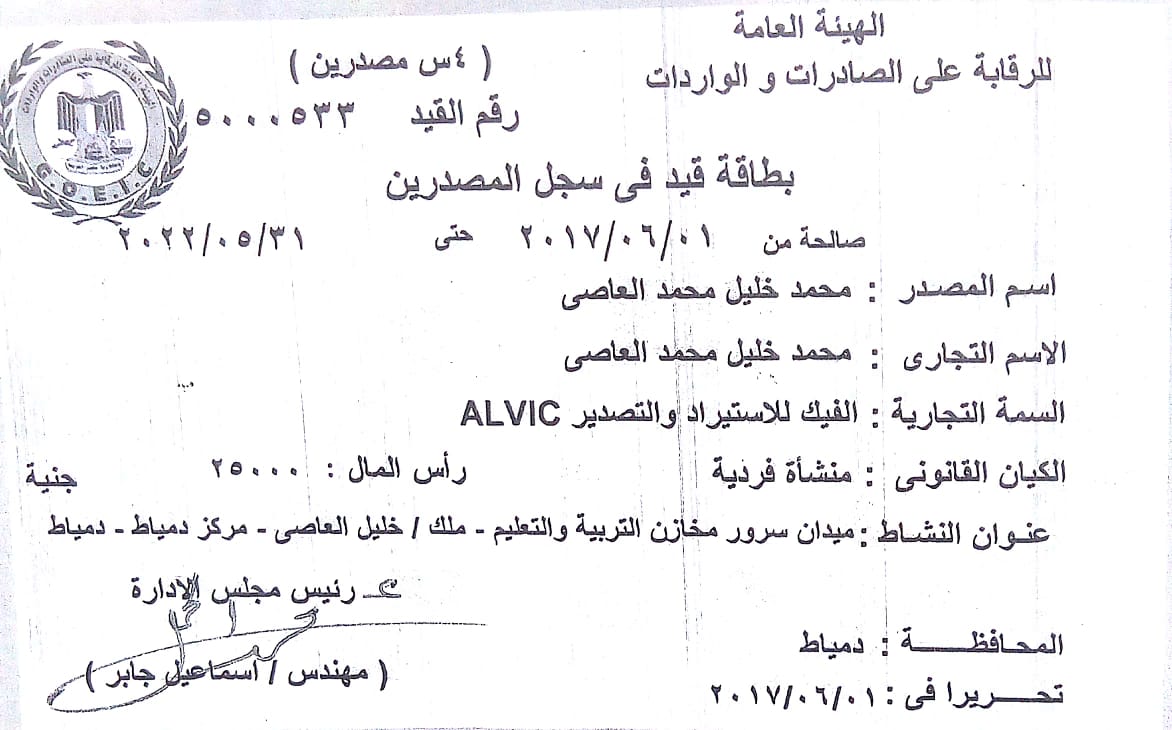 الهيئة العامة
للرقابة على الصادرات و الواردات
( ٤س مصدرين )
رقم القيد ٥٠٠٠٥٣٣
G.O.E.I.C
بطاقة قيد فى سجل المصدرين
صالحة من ٢٠١٧/٠٦/٠١ حتى ٢٠٢٢/٠٥/٣١
اسم المصدر : محمد خليل محمد العاصى
الاسم التجارى : محمد خليل محمد العاصى
السمة التجارية : الفيك للاستيراد والتصدير ALVIC
الكيان القانونى : منشأة فردية رأس المال : ٢٥٠٠٠ جنية
عنوان النشاط : ميدان سرور مخازن التربية والتعليم - ملك / خليل العاصى - مركز دمياط - دمياط
رئيس مجلس الادارة
( مهندس / اسماعيل جابر )
المحافظة : دمياط
تحريرا فى : ٢٠١٧/٠٦/٠١